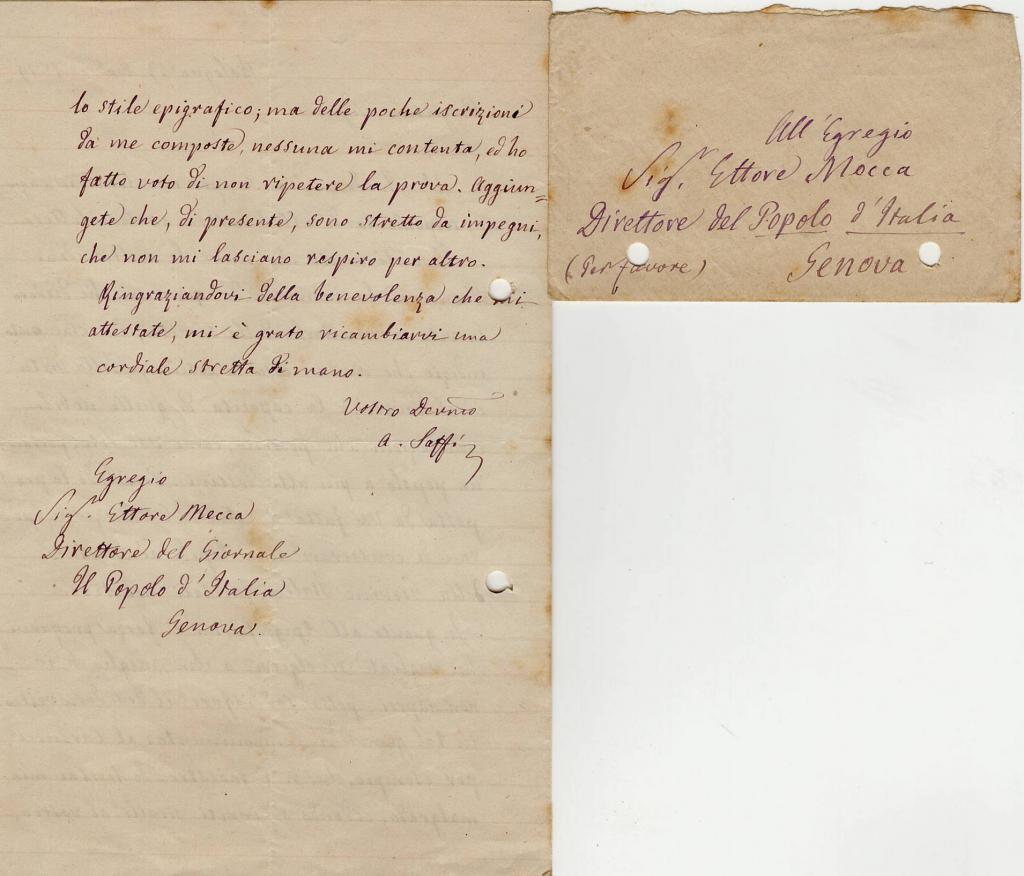 lo stile epigrafico; ma delle poche iscrizioni
da me composte, nessuna mi contenta, ed ho
fatto voto di non ripetere la prova. Aggiun=
gete che, di presente, sono stretto da impegni,
che non mi lasciano respiro per altro.
Ringraziandovi della benevolenza che mi
attestate, mi è grato ricambiarvi una
cordiale stretta di mano.
Vostro Devmo
A. Saffi
Egregio
Sigr. Ettore Mecca
Direttore del Giornale
Il Popolo d'Italia
Genova.
All'Egregio
Sigr. Ettore Mecca
Direttore del Popolo d'Italia
(Per favore) Genova